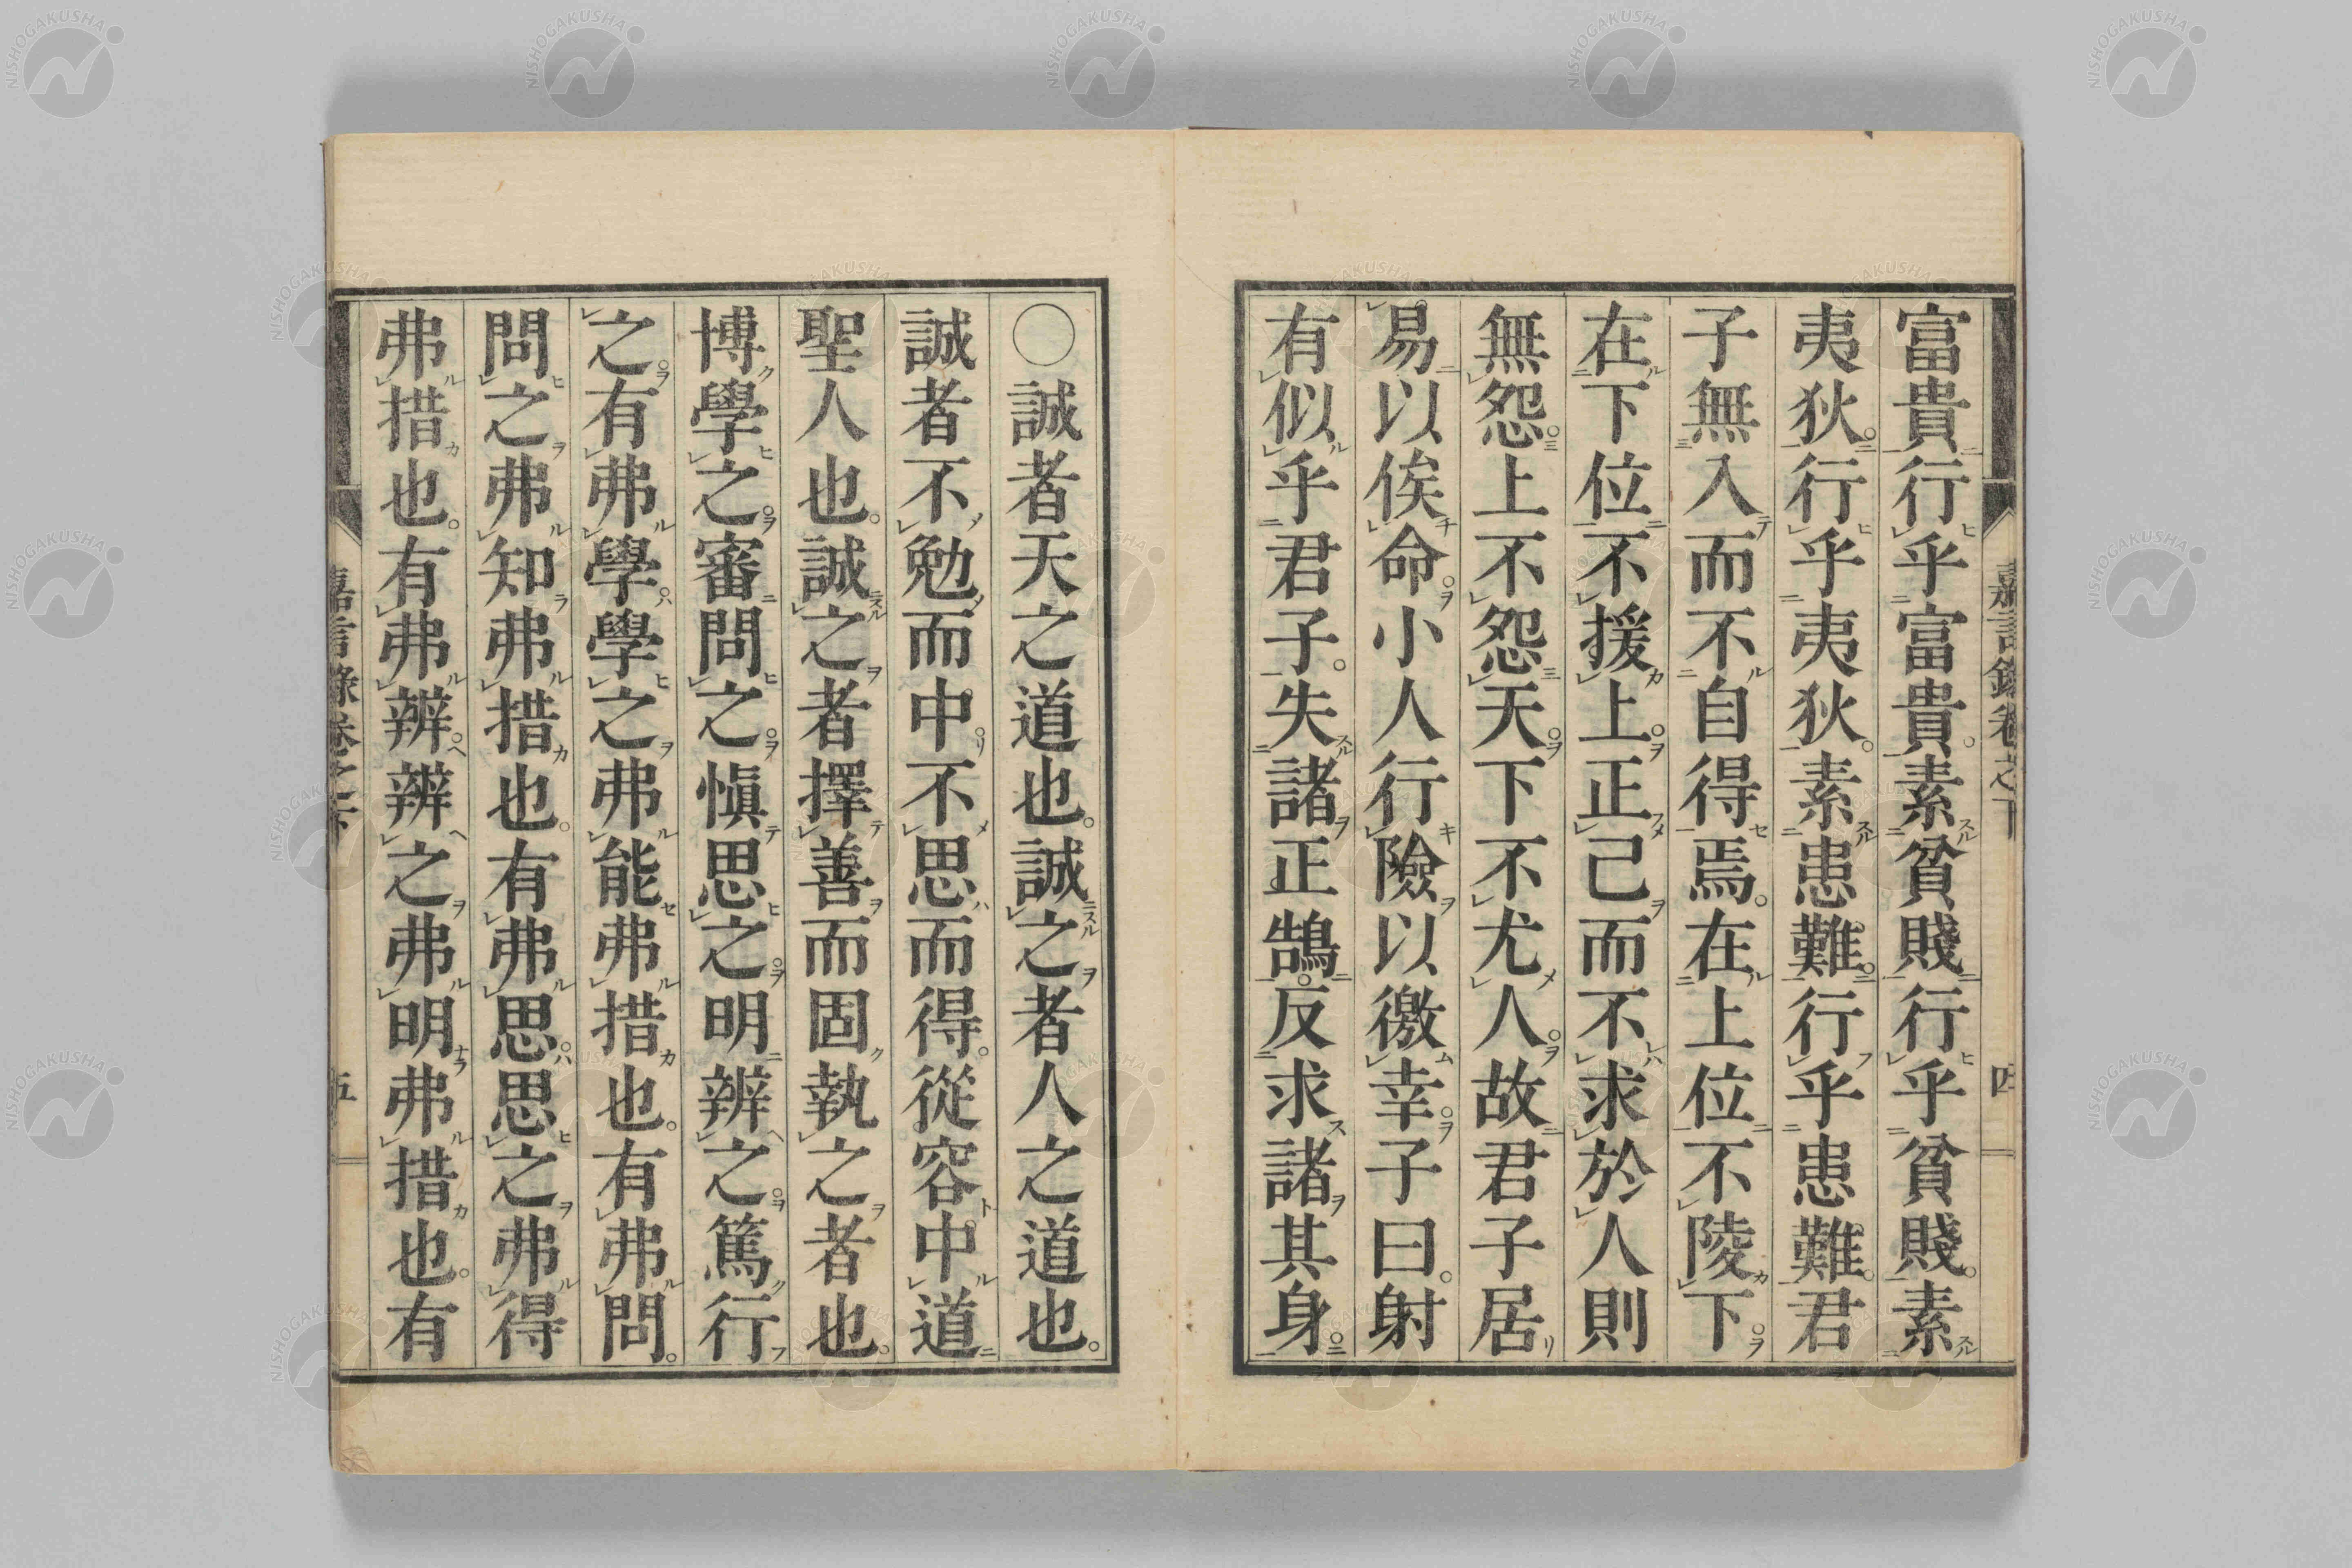 富貴行乎富貴。素貧賤行乎貧賤。素
夷狄。行乎夷狄。素患難。行乎患難。君
子無入而不自得焉。在上位不陵下。
在下位不援上。正己而不求於人則
無怨。上不怨天。下不尤人。故君子居
易以俟命。小人行險以徼幸。子曰。射
有似乎君子。失諸正鵠。反求諸其身。
嘉言錄卷之下
四
○誠者天之道也。誠之者人之道也。
誠者不勉而中。不思而得。從容中道
聖人也。誠之者擇善而固執之者也。
博學之。審問之。愼思之。明辨之。篤行
之。有弗學。學之弗能弗措也。有弗問。
問之弗知弗措也。有弗思。思之弗得
弗措也。有弗辨。辨之弗明弗措也。有
嘉言錄卷之下
五
NISHOGAKUSHA